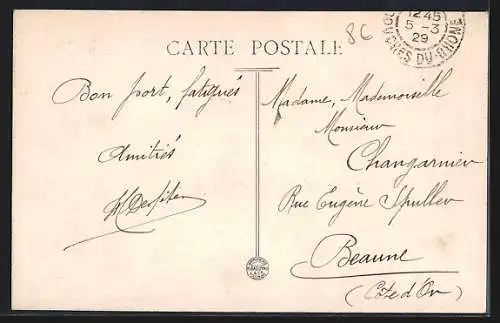 86
12 45
5 - 3
29
CHES DU RHONE
CARTE POSTALE
Bon port, fatigués
Amitiés
Madame, Mademoiselle
Monsieur
Changarnier
Rue Eugène Spuller
Beaune
(Côte d'Or)